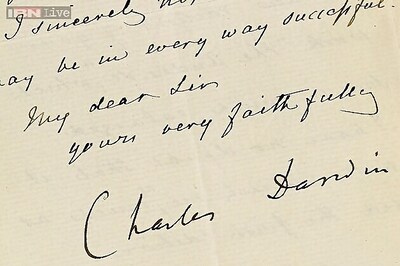 IBN live
I sincerely
may be in every way successful.
My dear Sir
yours very faithfully
Charles Darwin